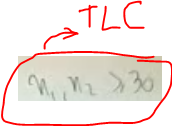 TLC
n₁, n₂ ≥ 30